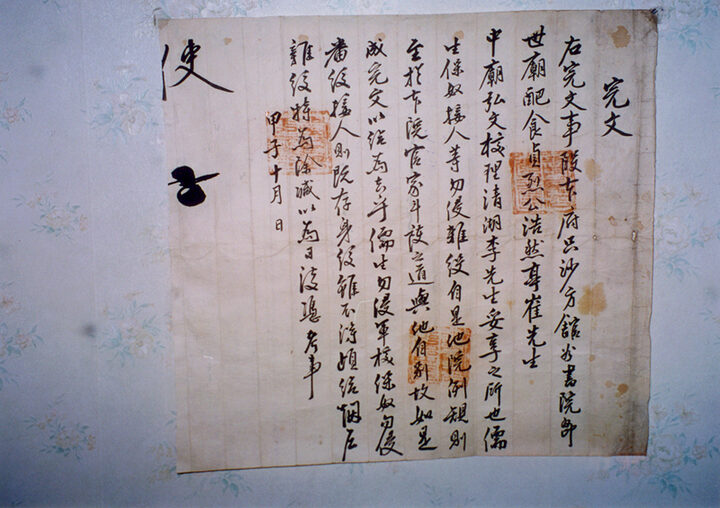 完文
右完文事段本府只沙方舘書院即
世廟配食貞烈公浩然亭崔先生
中廟弘文校理清湖李先生妥享之所也儒
生保奴接人等勿侵雜役自是他院例規則
至於本院官家斗護之道與他自別故如是
成完文以給爲去乎儒生勿侵軍校保奴勿侵
番役接人則既存身役雖不得頉給烟戶
雜役特爲除减以爲日後憑考事
甲子十月 日
使